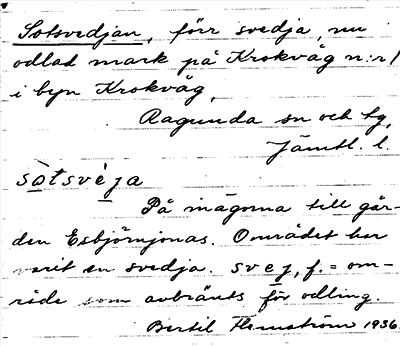 Sotsvedjan, förr svedja, nu
odlad mark på Krokvåg n:r 1
i byn Krokvåg,
Ragunda sn och tg,
Jämtl. l.
sòtsvèja
På mägorna till går-
den Esbjörnjonas. Området har
varit en svedja. svej, f. = om-
råde som avbränts för odling.
Bertil Flemström 1936.